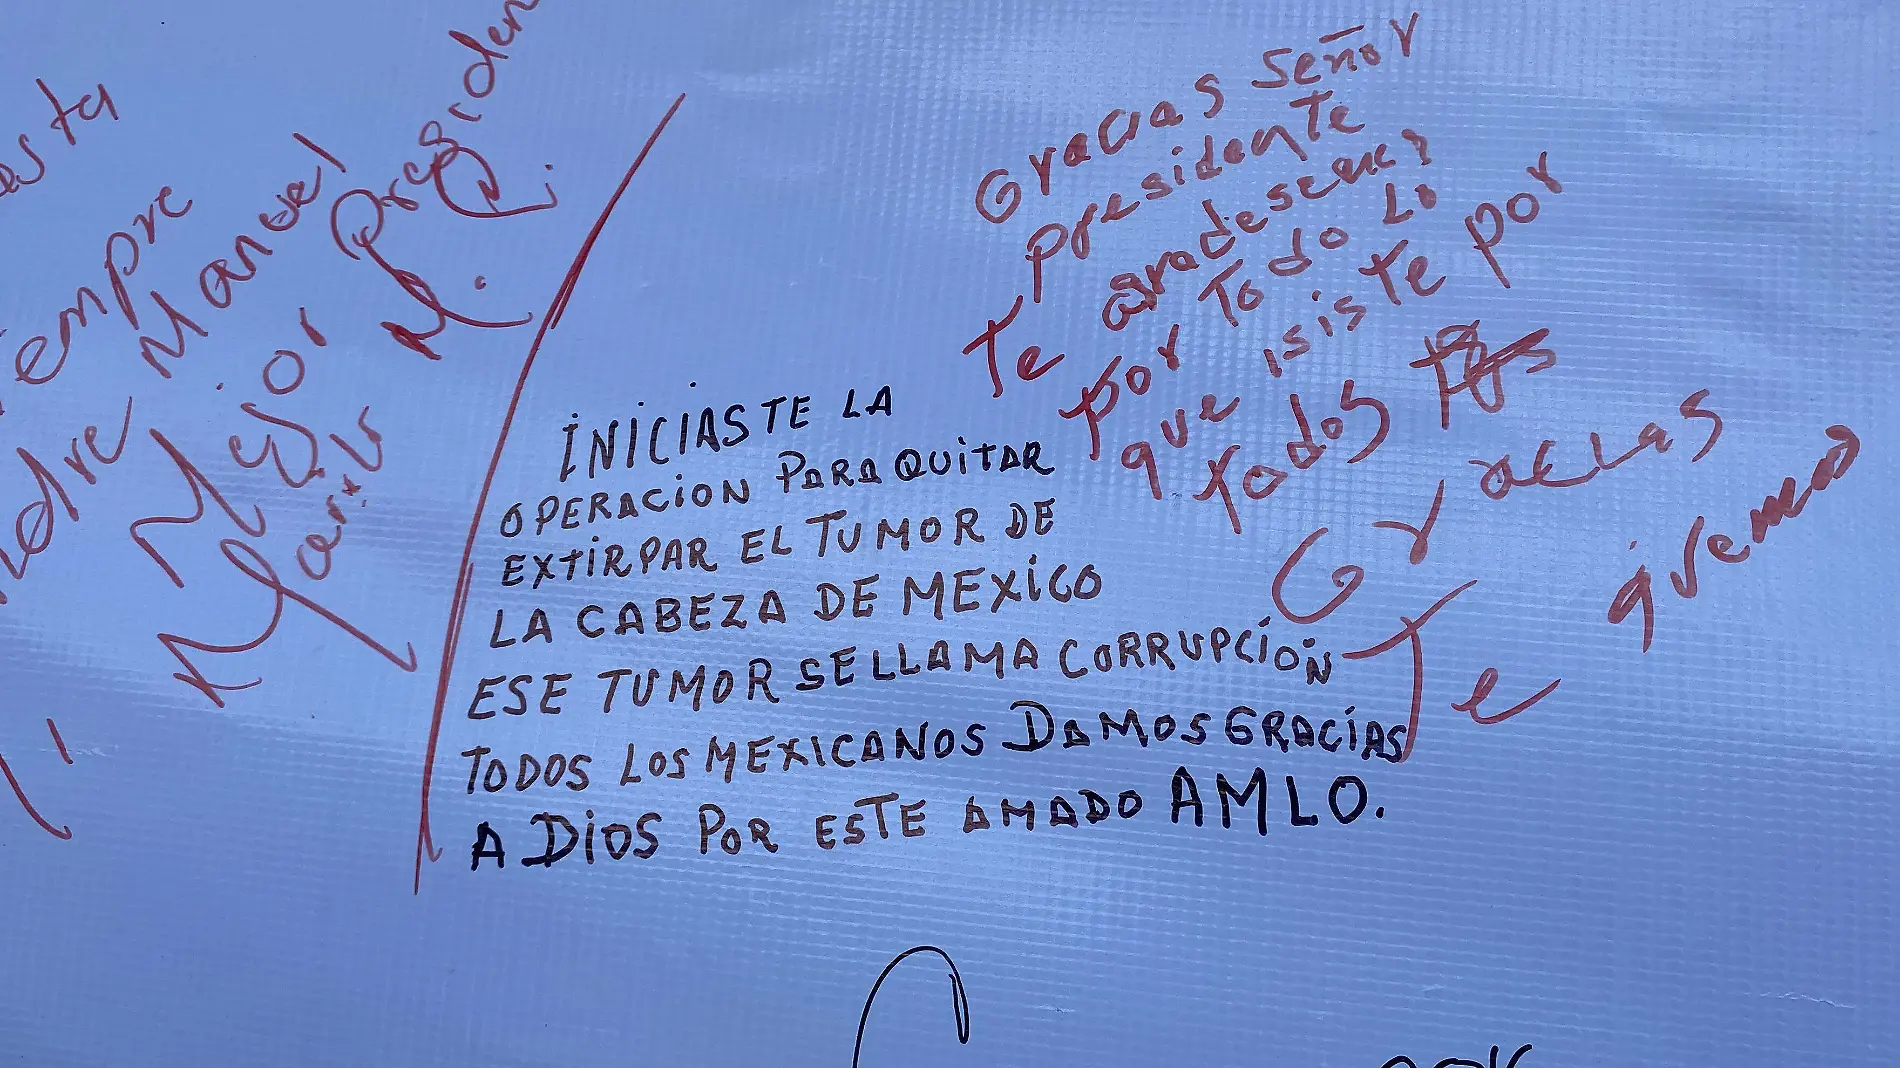 esta
empre
Manuel
Mejor Presiden
M.
INICIASTE LA
OPERACION PARA QUITAR
EXTIRPAR EL TUMOR DE
LA CABEZA DE MEXICO
ESE TUMOR SE LLAMA CORRUPCIÓN
TODOS LOS MEXICANOS DAMOS GRACIAS
A DIOS POR ESTE AMADO AMLO.
Gracias Señor
presidente
Te
por Todo Lo
que isiste por
todos
Gracias
Te quemos